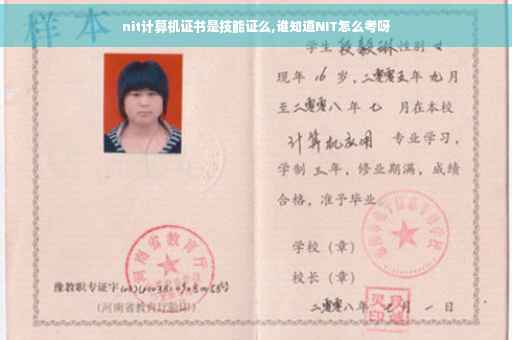 nit计算机证书是技能证么,谁知道NIT怎么考呀
样本
学生 段毅琳 性别 女
现年 16 岁,二零零五年 九 月
至二零零八年 七 月在本校
计算机应用 专业学习,
学制 三 年,修业期满,成绩
合格,准予毕业
学校(章)
校长(章)
二零零八年 七 月 一 日
河南省教育厅
豫教职专证字
(河南省教育厅验印)